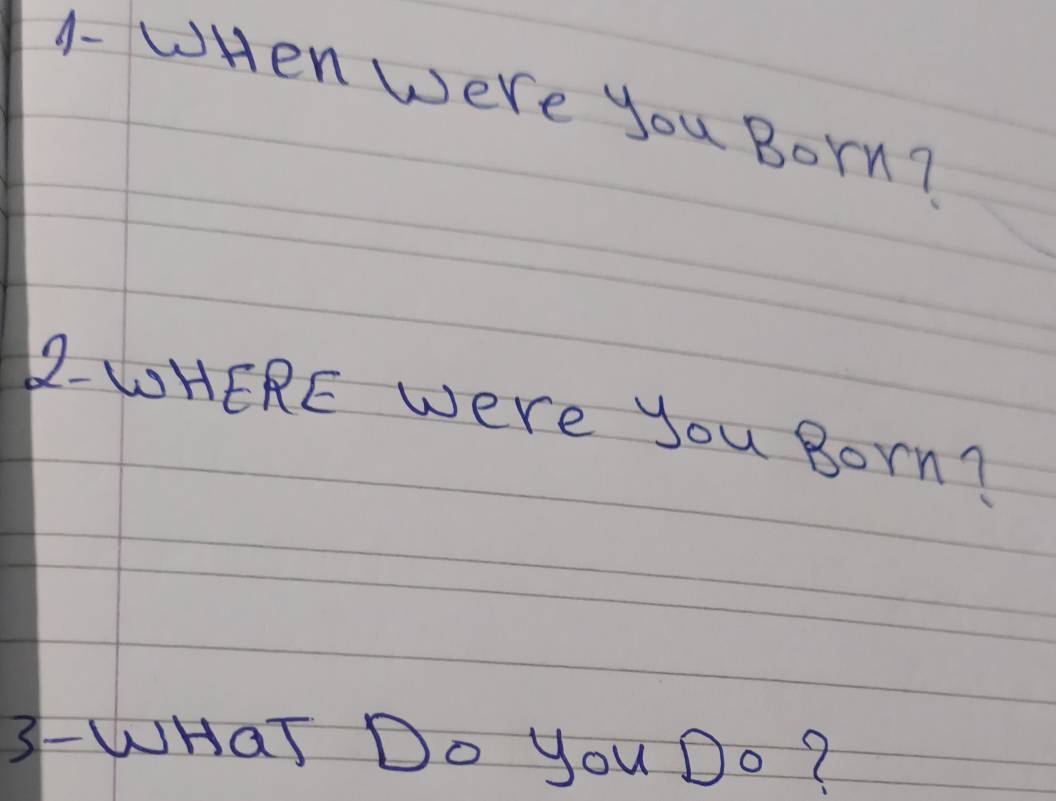 1- WHen were you Born?
2- WHERE were you Born?
3- WHaT Do you Do?